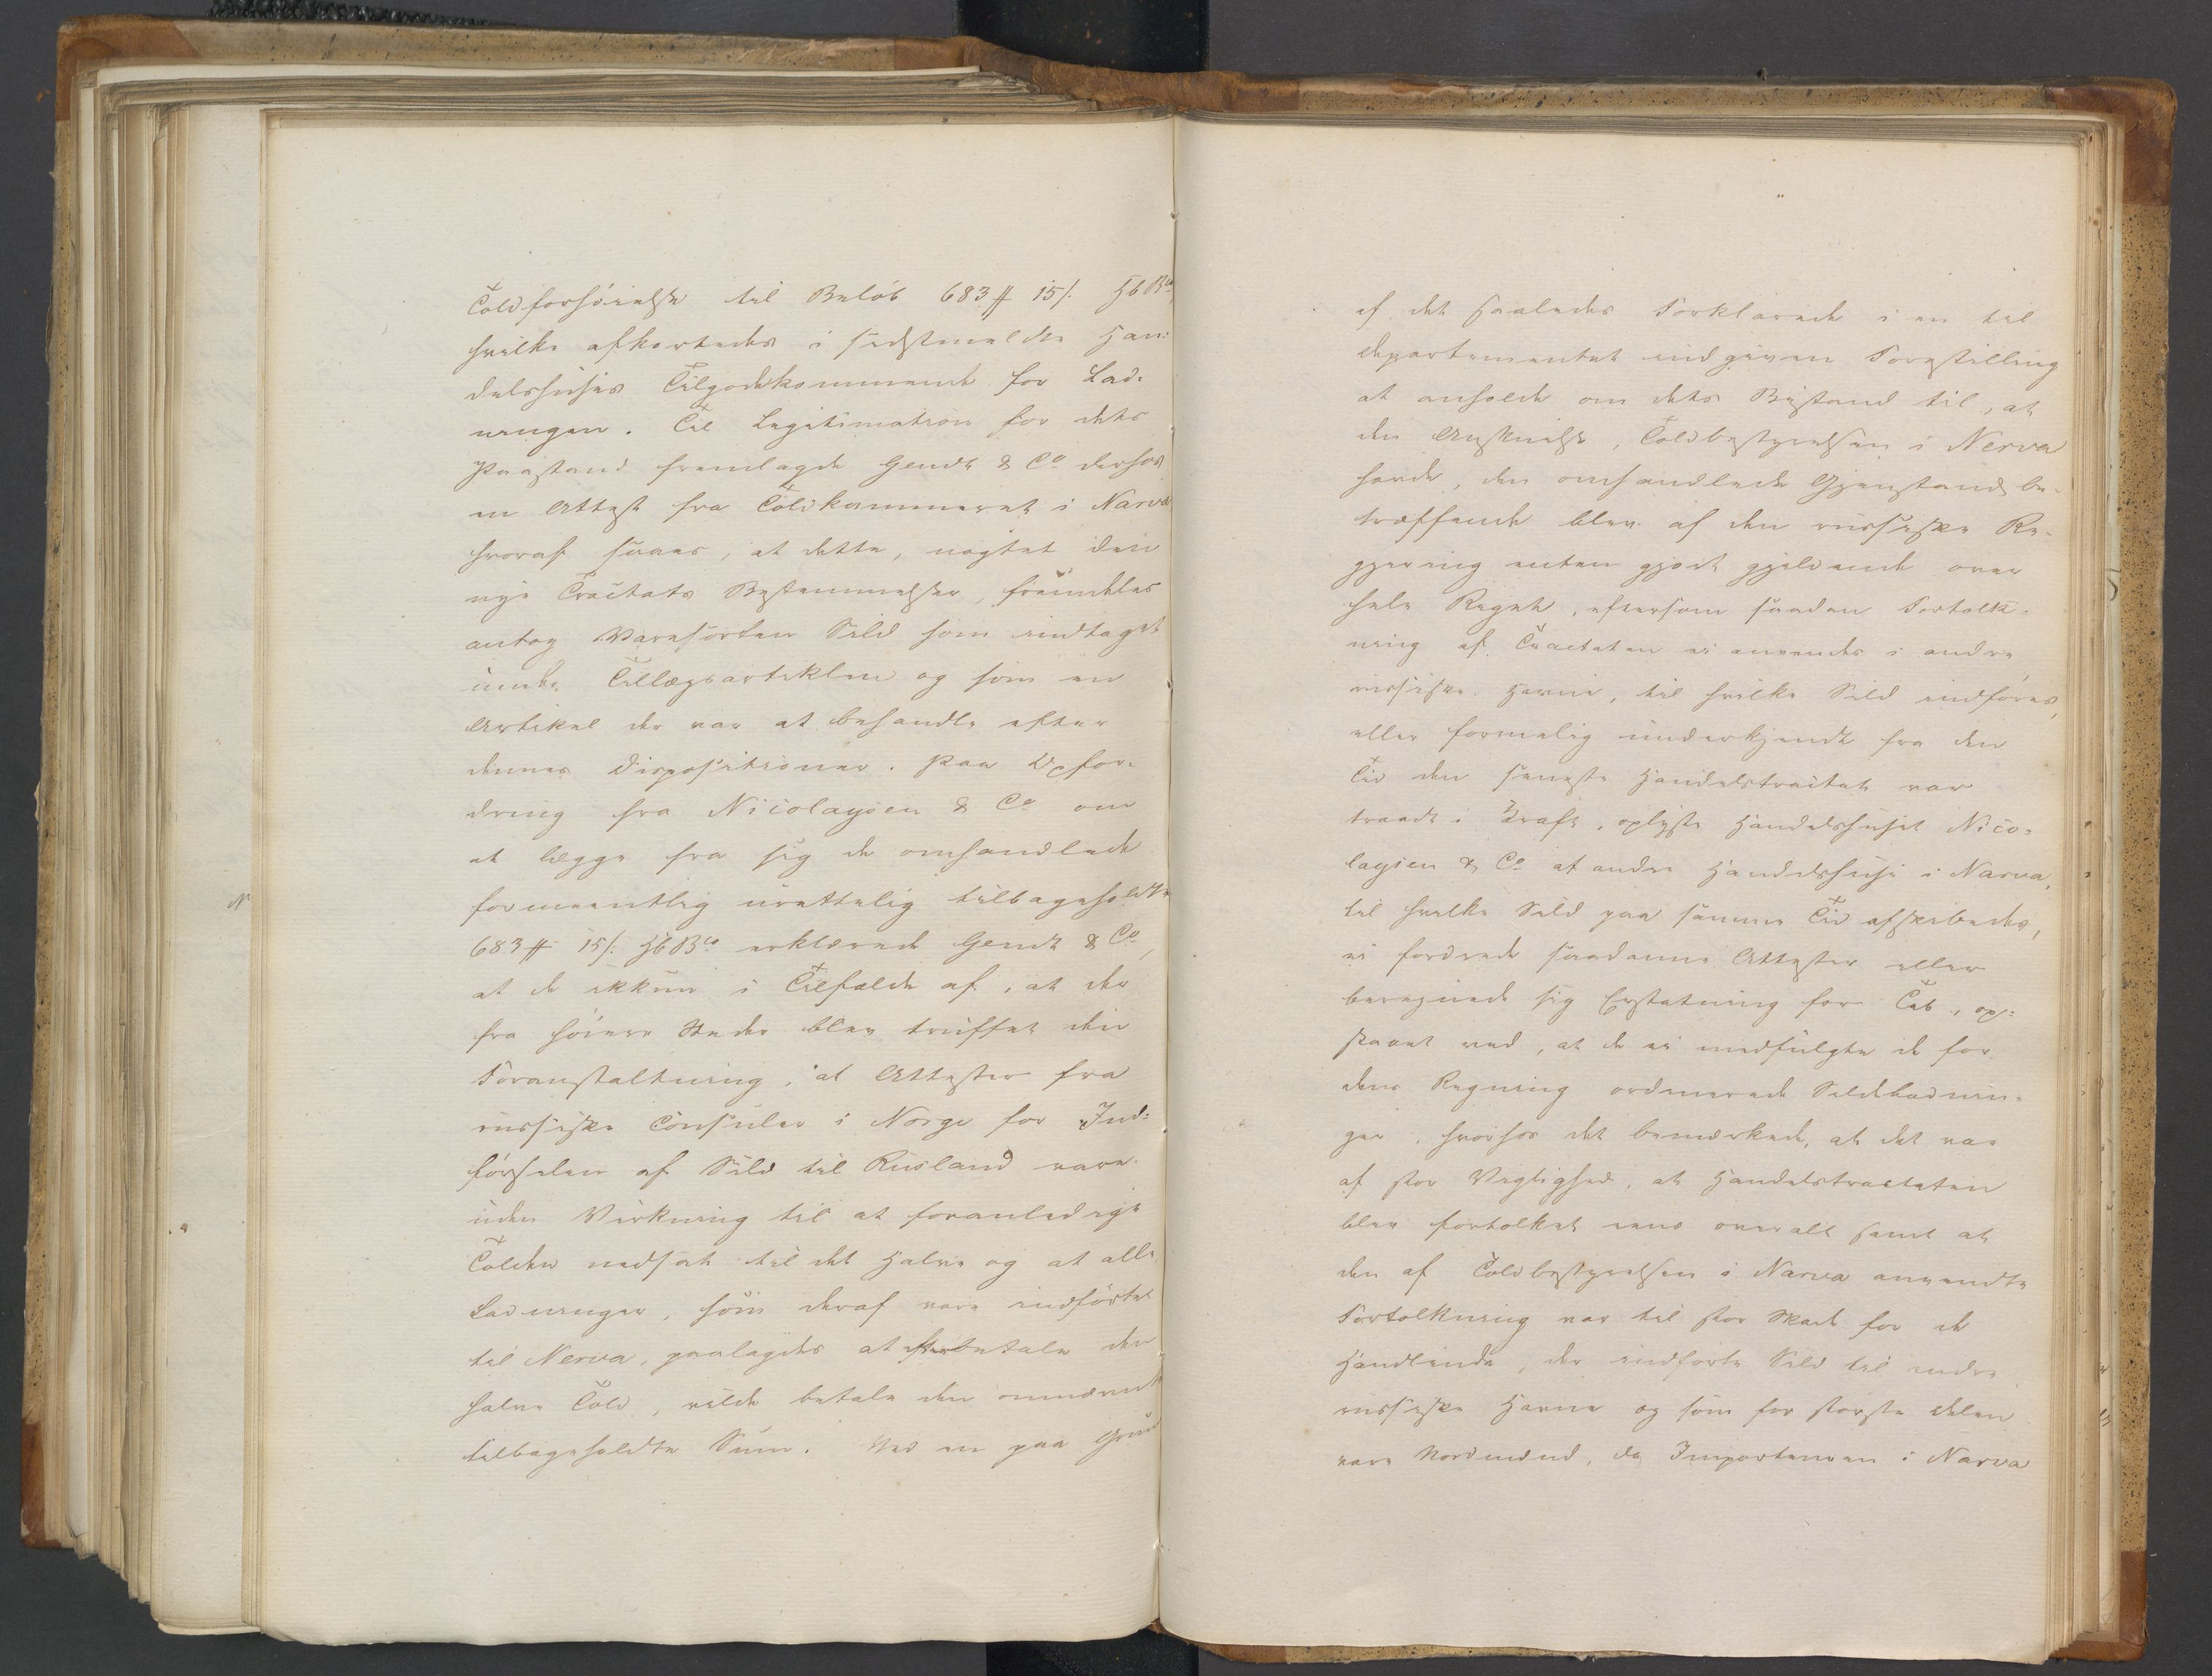 Toldforhöielse til Beløb 683 ℔ 15/. HbBco,
hvilke afkortedes i sidstmeldte Han-
delshuses Tilgodekommende for Lad-
ningen. Til Legitimation for dets
Paastand fremlagde Gendt & Co derhos
en Attest fra Toldkammeret i Narva
hvoraf saaes, at dette, uagtet den
nye Tractats Bestemmelser, fremdeles
antog Varesorten Sild som indtaget
under Tillægsartiklen og som en
Artikel der var at behandle efter
dennes Dispositioner. Paa Opfor-
dring fra Nicolaysen & Co om
at lægge fra sig de omhandlede
formeentlig urettelig tilbageholdte
683 ℔ 15/. HbBco erklærede Gendt & Co,
at de ikkun i Tilfælde af, at der
fra höiere Steder blev truffet den
Foranstaltning, at Attester fra
russiske Consuler i Norge for Ind-
förselen af Sild til Rusland vare
uden Virkning til at foranledige
Tolden nedsat til det Halve og at alle
Ladninger, som deraf vare indförte
til Nerva, paalagdes at efterbetale den
halve Told, vilde betale den omnævnte
tilbageholdte Sum. Ved en paa Grund
af det saaledes Forklarede i en til
Departementet indgiven Forestilling
at anholde om dets Bistand til, at
den Anskuelse, Toldbestyrelsen i Nerva
havde, den omhandlede Gjenstand be-
træffende blev af den russiske Re-
gjering enten gjort gjeldende over
hele Riget, eftersom saadan Fortolk-
ning af Tractaten ei anvendes i andre
russiske Havne, til hvilke Sild indföres,
eller formelig underkjendt fra den
Tid den seneste Handelstractat var
traadt i Kraft, oplyste Handelshuset Nico-
laysen & Co at andre Handelshuse i Narva,
til hvilke Sild paa samme Tid afskibedes,
ei fordrede saadanne Attester eller
beregnede sig Erstatning for Tab, op-
staaet ved, at de ei medfulgte de for
dens Regning ordinerede Sildeladnin-
ger, hvorhos det bemærkede, at det var
af stor Vigtighed, at Handelstractaten
blev fortolket eens overalt samt at
den af Toldbestyrelsen i Narva anvendte
Fortolkning var til stor Skade for de
Handlende, der indförte Sild til andre
russiske Havne og som for störste Delen
vare Nordmænd, da Importeuren i Narva